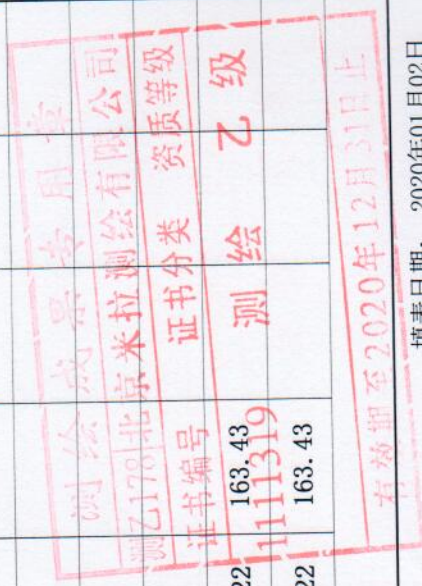 测绘成果专用章
测乙178 北京米拉测绘有限公司
证书编号 证书分类 资质等级
1111319 测绘 乙级
有效期至2020年12月31日止
22 163.43
22 163.43
填表日期: 2020年01月02日